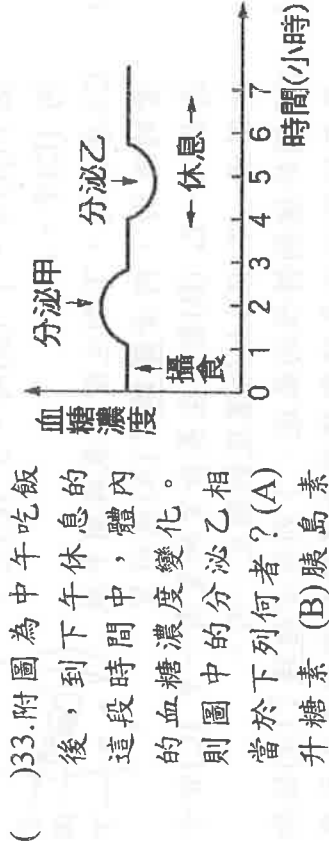 (　)33.附圖為中午吃飯
後，到下午休息的
這段時間中，體內
的血糖濃度變化。
則圖中的分泌乙相
當於下列何者？(A)
升糖素 (B)胰島素
血糖濃度
分泌甲
分泌乙
攝食
←休息→
0 1 2 3 4 5 6 7
時間(小時)